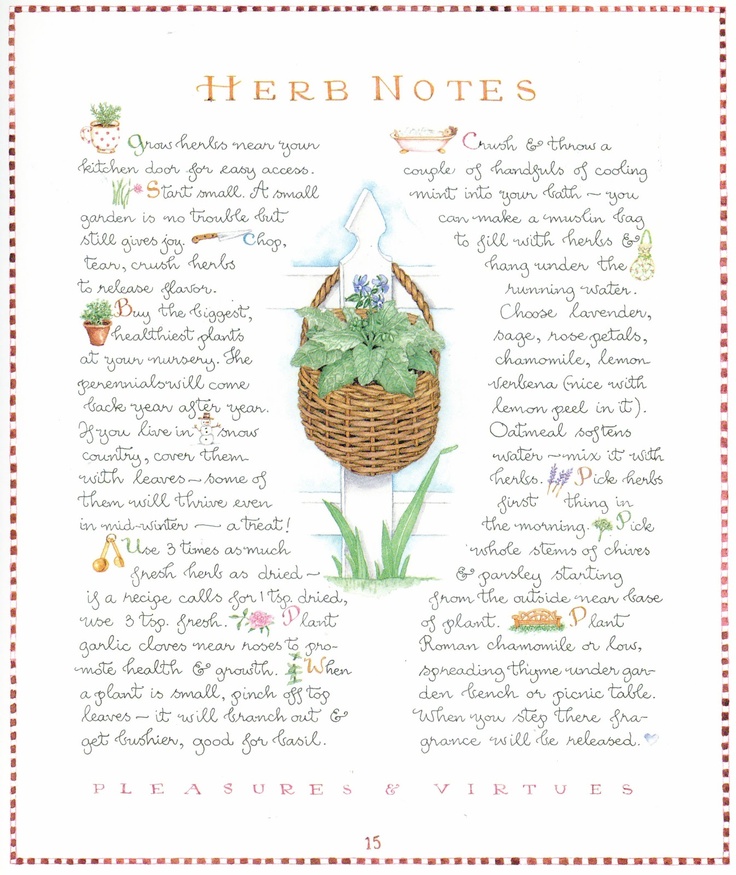 HERB NOTES
Grow herbs near your
kitchen door for easy access.
Start small. A small
garden is no trouble but
still gives joy. Chop,
tear, crush herbs
to release flavor.
Buy the biggest,
healthiest plants
at your nursery. The
perennials will come
back year after year.
If you live in snow
country, cover them
with leaves — some of
them will thrive even
in mid-winter — a treat!
Use 3 times as much
fresh herb as dried —
if a recipe calls for 1 tsp. dried,
use 3 tsp. fresh. Plant
garlic cloves near roses to pro-
mote health & growth. When
a plant is small, pinch off top
leaves — it will branch out &
get bushier, good for basil.
Crush & throw a
couple of handfuls of cooling
mint into your bath — you
can make a muslin bag
to fill with herbs &
hang under the
running water.
Choose lavender,
sage, rose petals,
chamomile, lemon
verbena (nice with
lemon peel in it).
Oatmeal softens
water — mix it with
herbs. Pick herbs
first thing in
the morning. Pick
whole stems of chives
& parsley starting
from the outside near base
of plant. Plant
Roman chamomile or low,
spreading thyme under gar-
den bench or picnic table.
When you step there fra-
grance will be released.
PLEASURES & VIRTUES
15